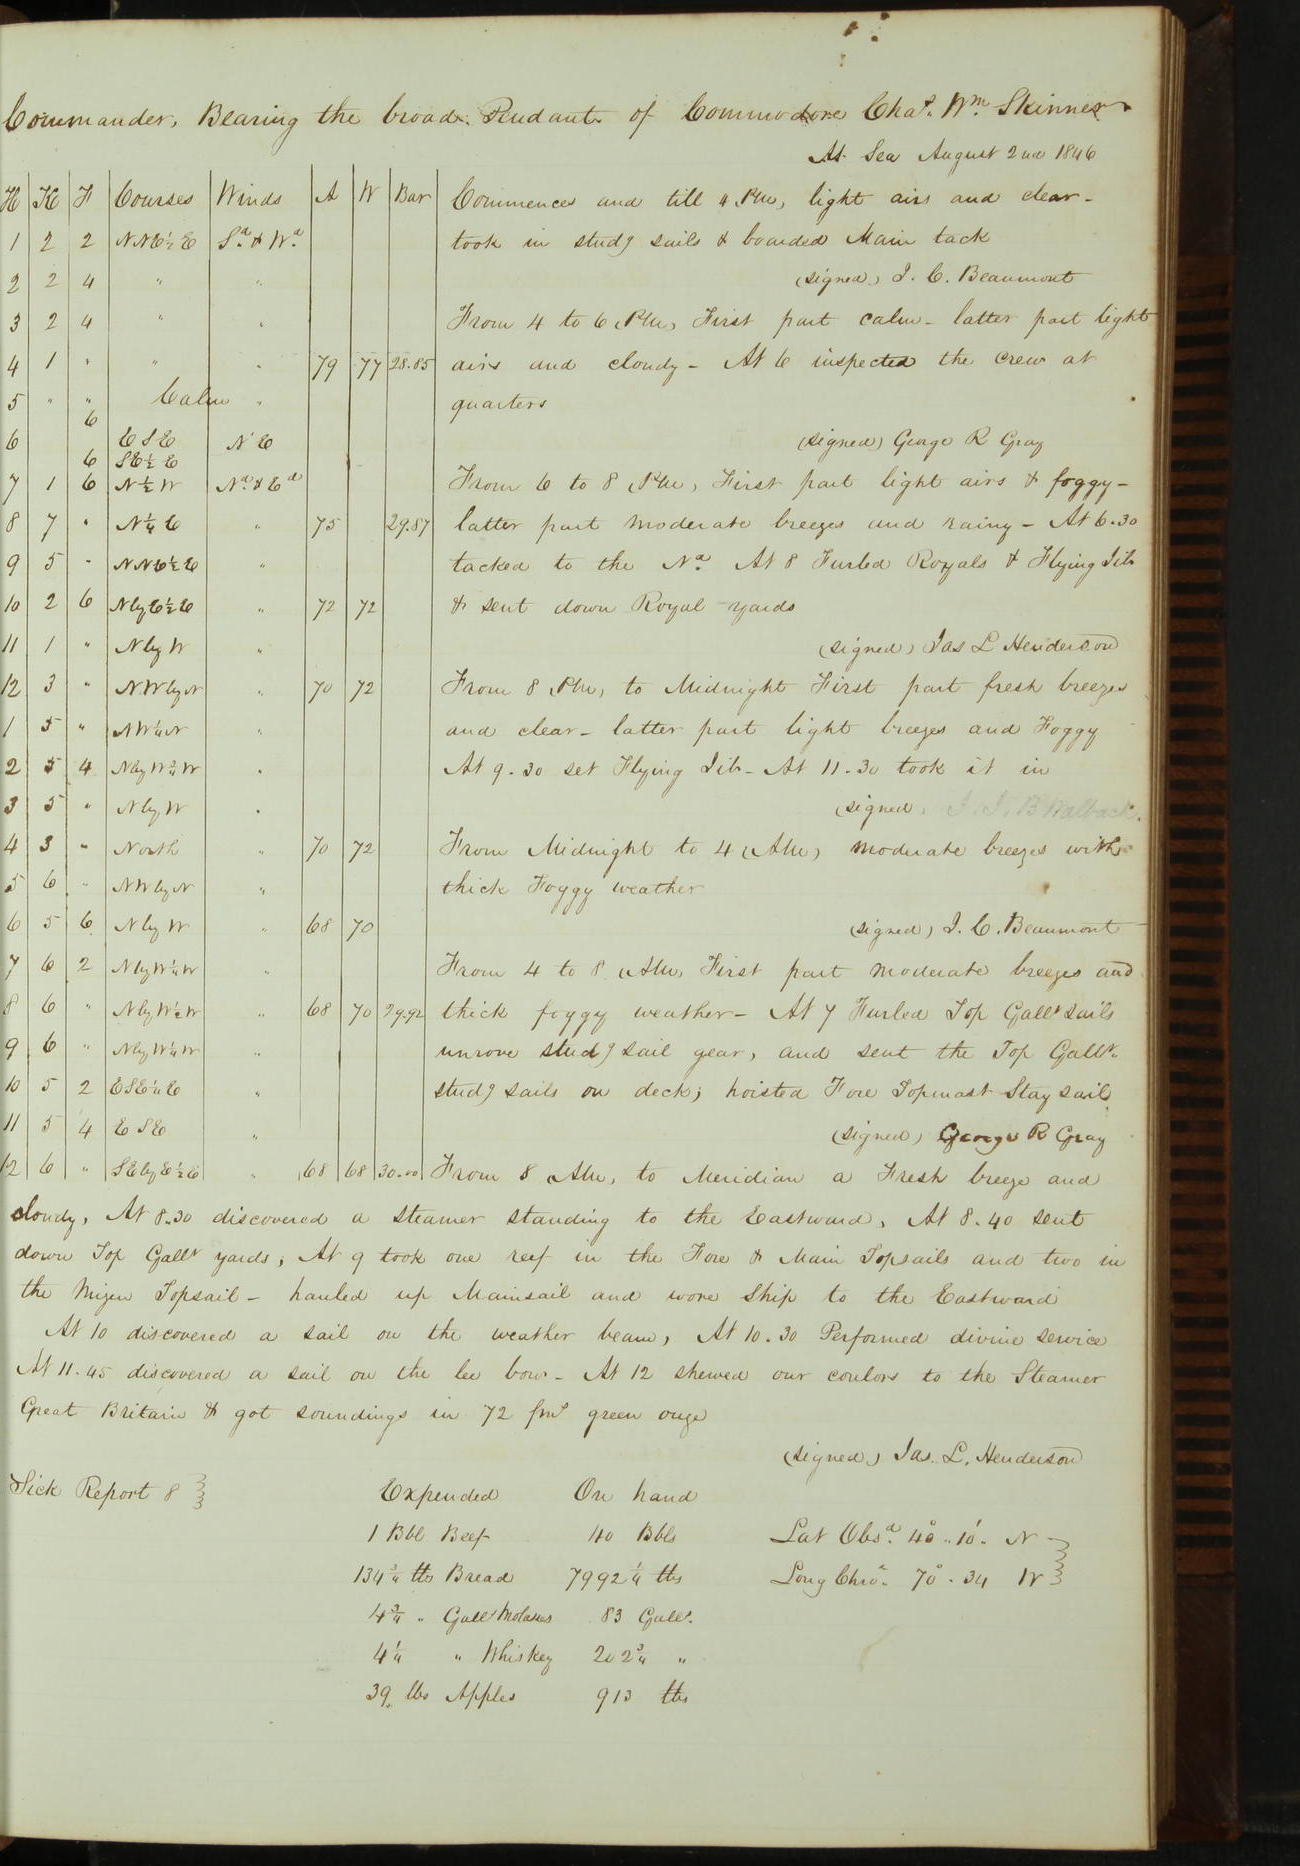 Commander, Bearing the broad Pendant of Commodore Chas. Wm. Skinner
At Sea August 2nd 1846
H K F Courses Winds A W Bar Commences and till 4 PM, light airs and clear-
1 2 2 NNE½E Sd & Wd took in studg sails & boarded Main tack
2 2 4 " " (signed) I. C. Beaumont
3 2 4 " " From 4 to 6 PM, First part calm- latter part light
4 1 " " " 79 77 28.85 airs and cloudy- At 6 inspected the crew at
5 " " Calm " quarters
6 6 ESE NE (signed) George R Gray
6 SE½E
7 1 6 N½W Nd & Ed From 6 to 8 PM, First part light airs & foggy-
8 7 " N¼E " 75 29.87 latter part moderate breezes and rainy- At 6.30
9 5 " NNE½E " tacked to the Nd. At 8 Furled Royals & Flying Jib
10 2 6 NbyE½E " 72 72 & sent down Royal yards
11 1 " NbyW " (signed) Jas L Henderson
12 3 " NWbyN " 70 72 From 8 PM, to Midnight First part fresh breezes
1 5 " NW¼N " and clear- latter part light breezes and Foggy
2 5 4 NbyW¾W " At 9.30 set Flying Jib- At 11.30 took it in
3 5 " NbyW " (signed) J. J. B Walback.
4 3 " North " 70 72 From Midnight to 4 AM, moderate breezes with
5 6 " NWbyN " thick Foggy weather
6 5 6 NbyW " 68 70 (signed) I. C. Beaumont
7 6 2 NbyW¼W " From 4 to 8 AM, First part moderate breezes and
8 6 " NbyW½W " 68 70 29.92 thick foggy weather- At 7 Furled Top Gallt sails
9 6 " NbyW¼W " unrove studg sail gear, and sent the Top Gallt.
10 5 2 ESE¼E " studg sails on deck; hoisted Fore Topmast Stay sail
11 5 4 ESE " (signed) George R Gray
12 6 " SEbyE½E " 68 68 30.00 From 8 AM, to Meridian a Fresh breeze and
cloudy, At 8.30 discovered a steamer standing to the Eastward, At 8.40 sent
down Top Gallt yards; At 9 took one reef in the Fore & Main Topsails and two in
the Mizen Topsail- hauled up Mainsail and wore Ship to the Eastward
At 10 discovered a sail on the weather beam, At 10.30 Performed divine service
At 11.45 discovered a sail on the lee bow- At 12 shewed our coulors to the Steamer
Great Britain & got soundings in 72 fms green ouze
(signed) Jas. L. Henderson
Sick Report 8 Expended On hand
1 Bbl Beef 40 Bbls Lat Obsd. 40°..10'. N
134¾ lbs Bread 7992¼ lbs Long Chro. 70°.34 W
4¾ " Galls Molasses 83 Galls.
4¼ " Whiskey 202¾ "
39 lbs Apples 913 lbs